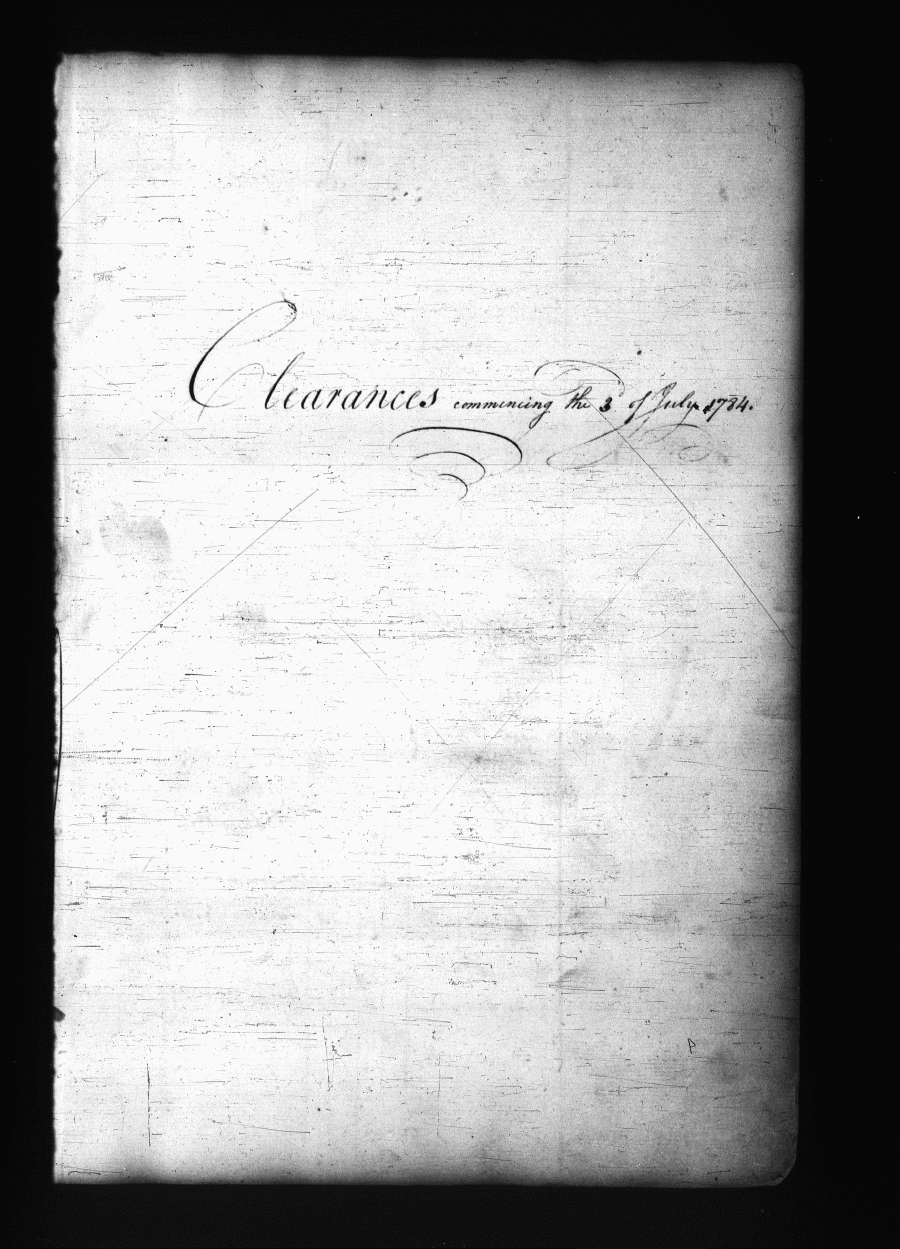 Clearances commencing the 3 of July 1784.